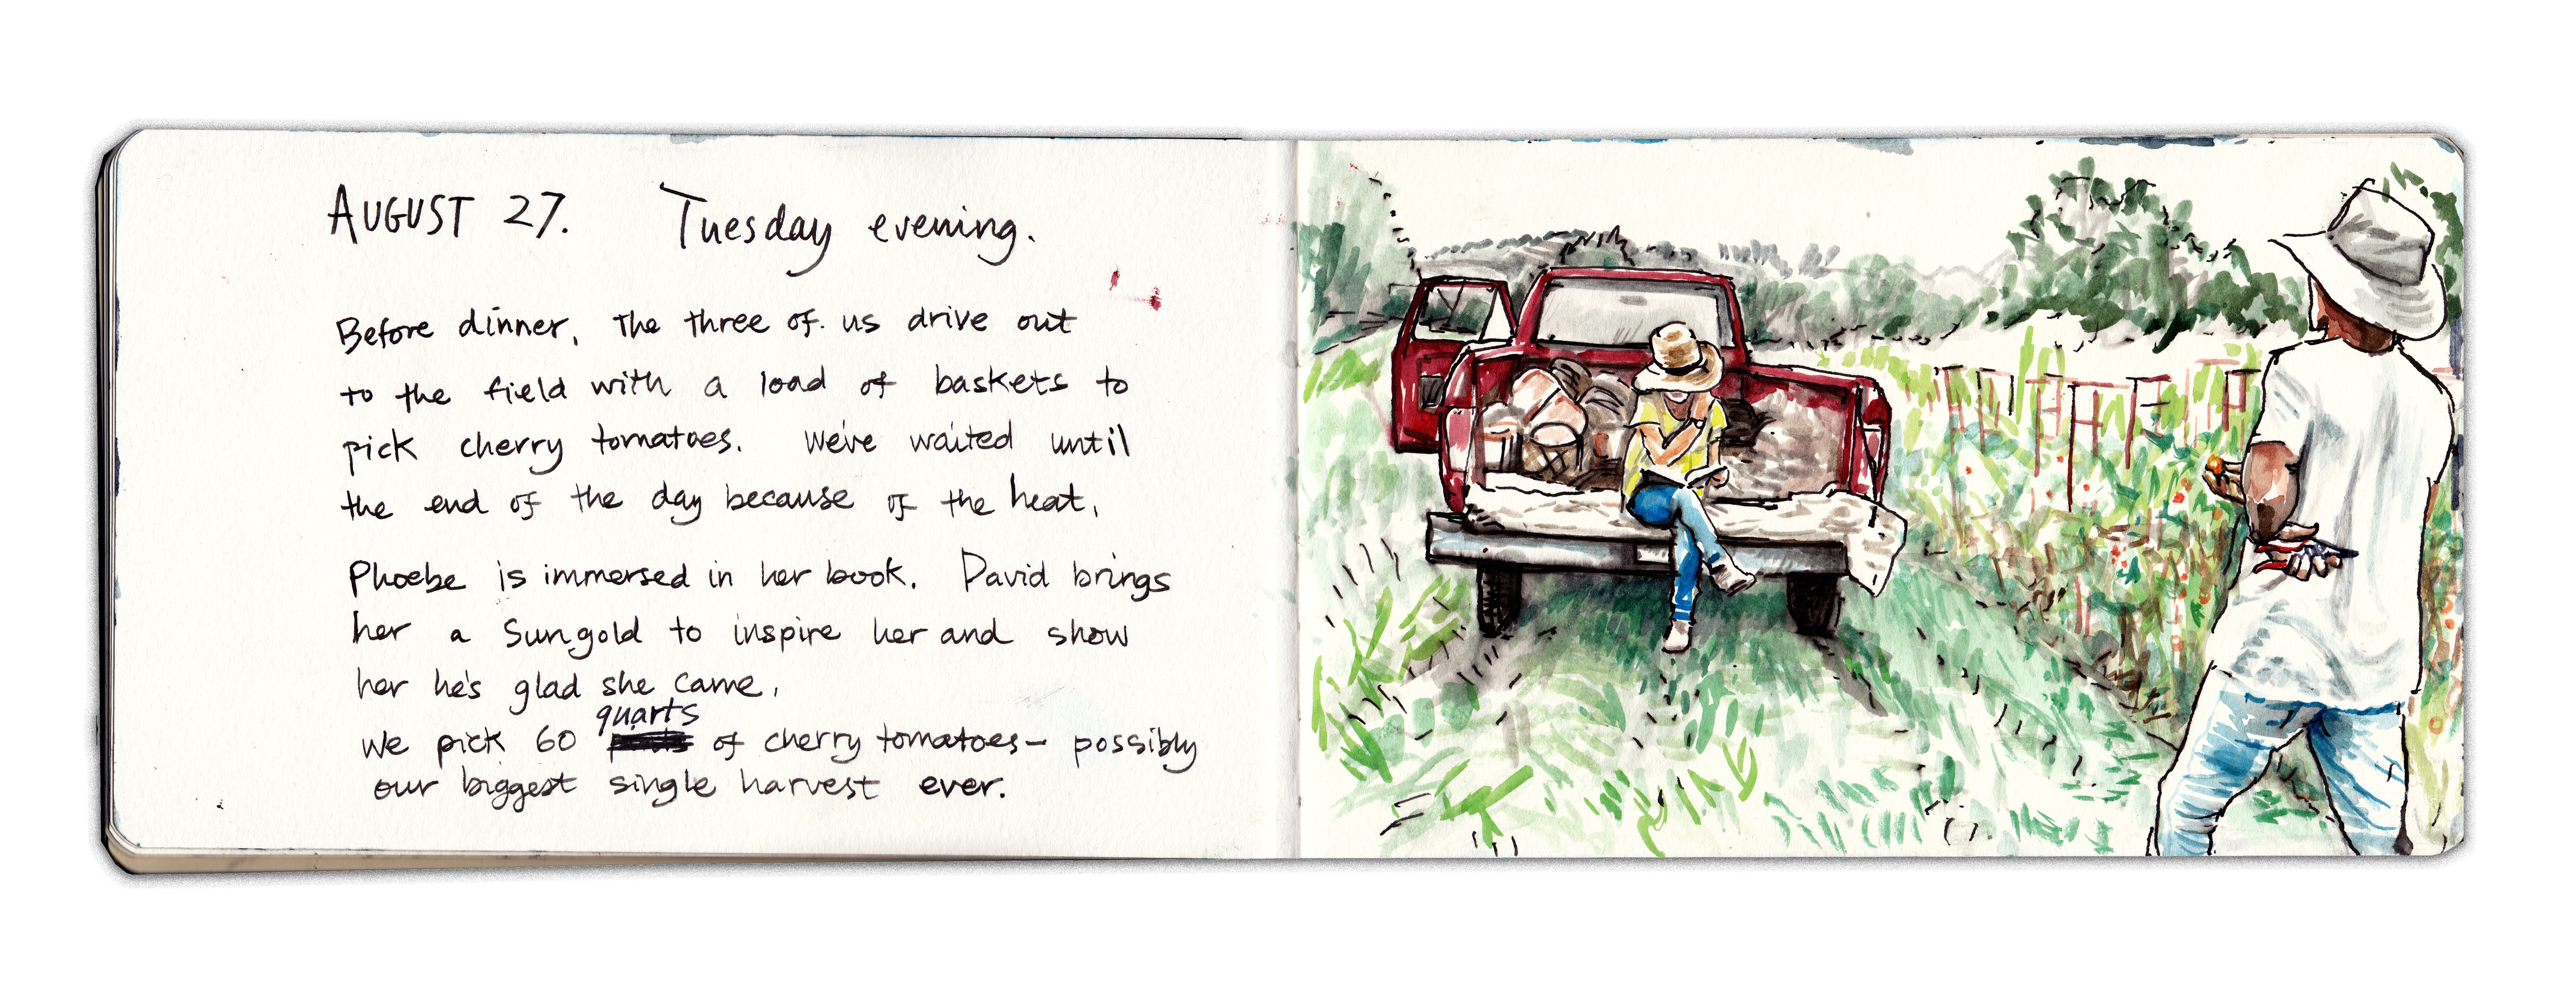 AUGUST 27. Tuesday evening.
Before dinner, the three of us drive out
to the field with a load of baskets to
pick cherry tomatoes. We've waited until
the end of the day because of the heat.
Phoebe is immersed in her book. David brings
her a Sungold to inspire her and show
her he's glad she came.
quarts
We pick 60 of cherry tomatoes- possibly
our biggest single harvest ever.